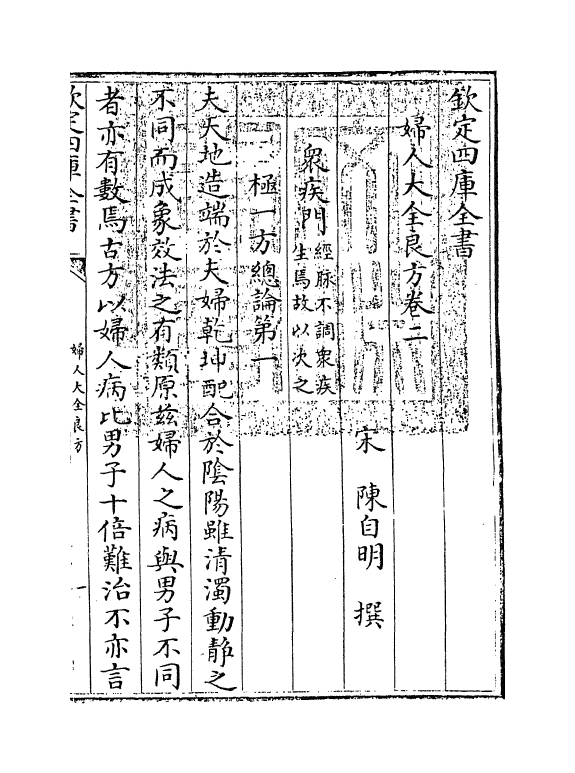 欽定四庫全書
婦人大全良方卷二
宋 陳自明 撰
衆疾門 經脉不調衆疾
生焉故以次之
極一方總論第一
夫天地造端於夫婦乾坤配合於陰陽雖清濁動静之
不同而成象效法之有類原兹婦人之病與男子不同
者亦有數焉古方以婦人病比男子十倍難治不亦言
欽定四庫全書
婦人大全良方
一